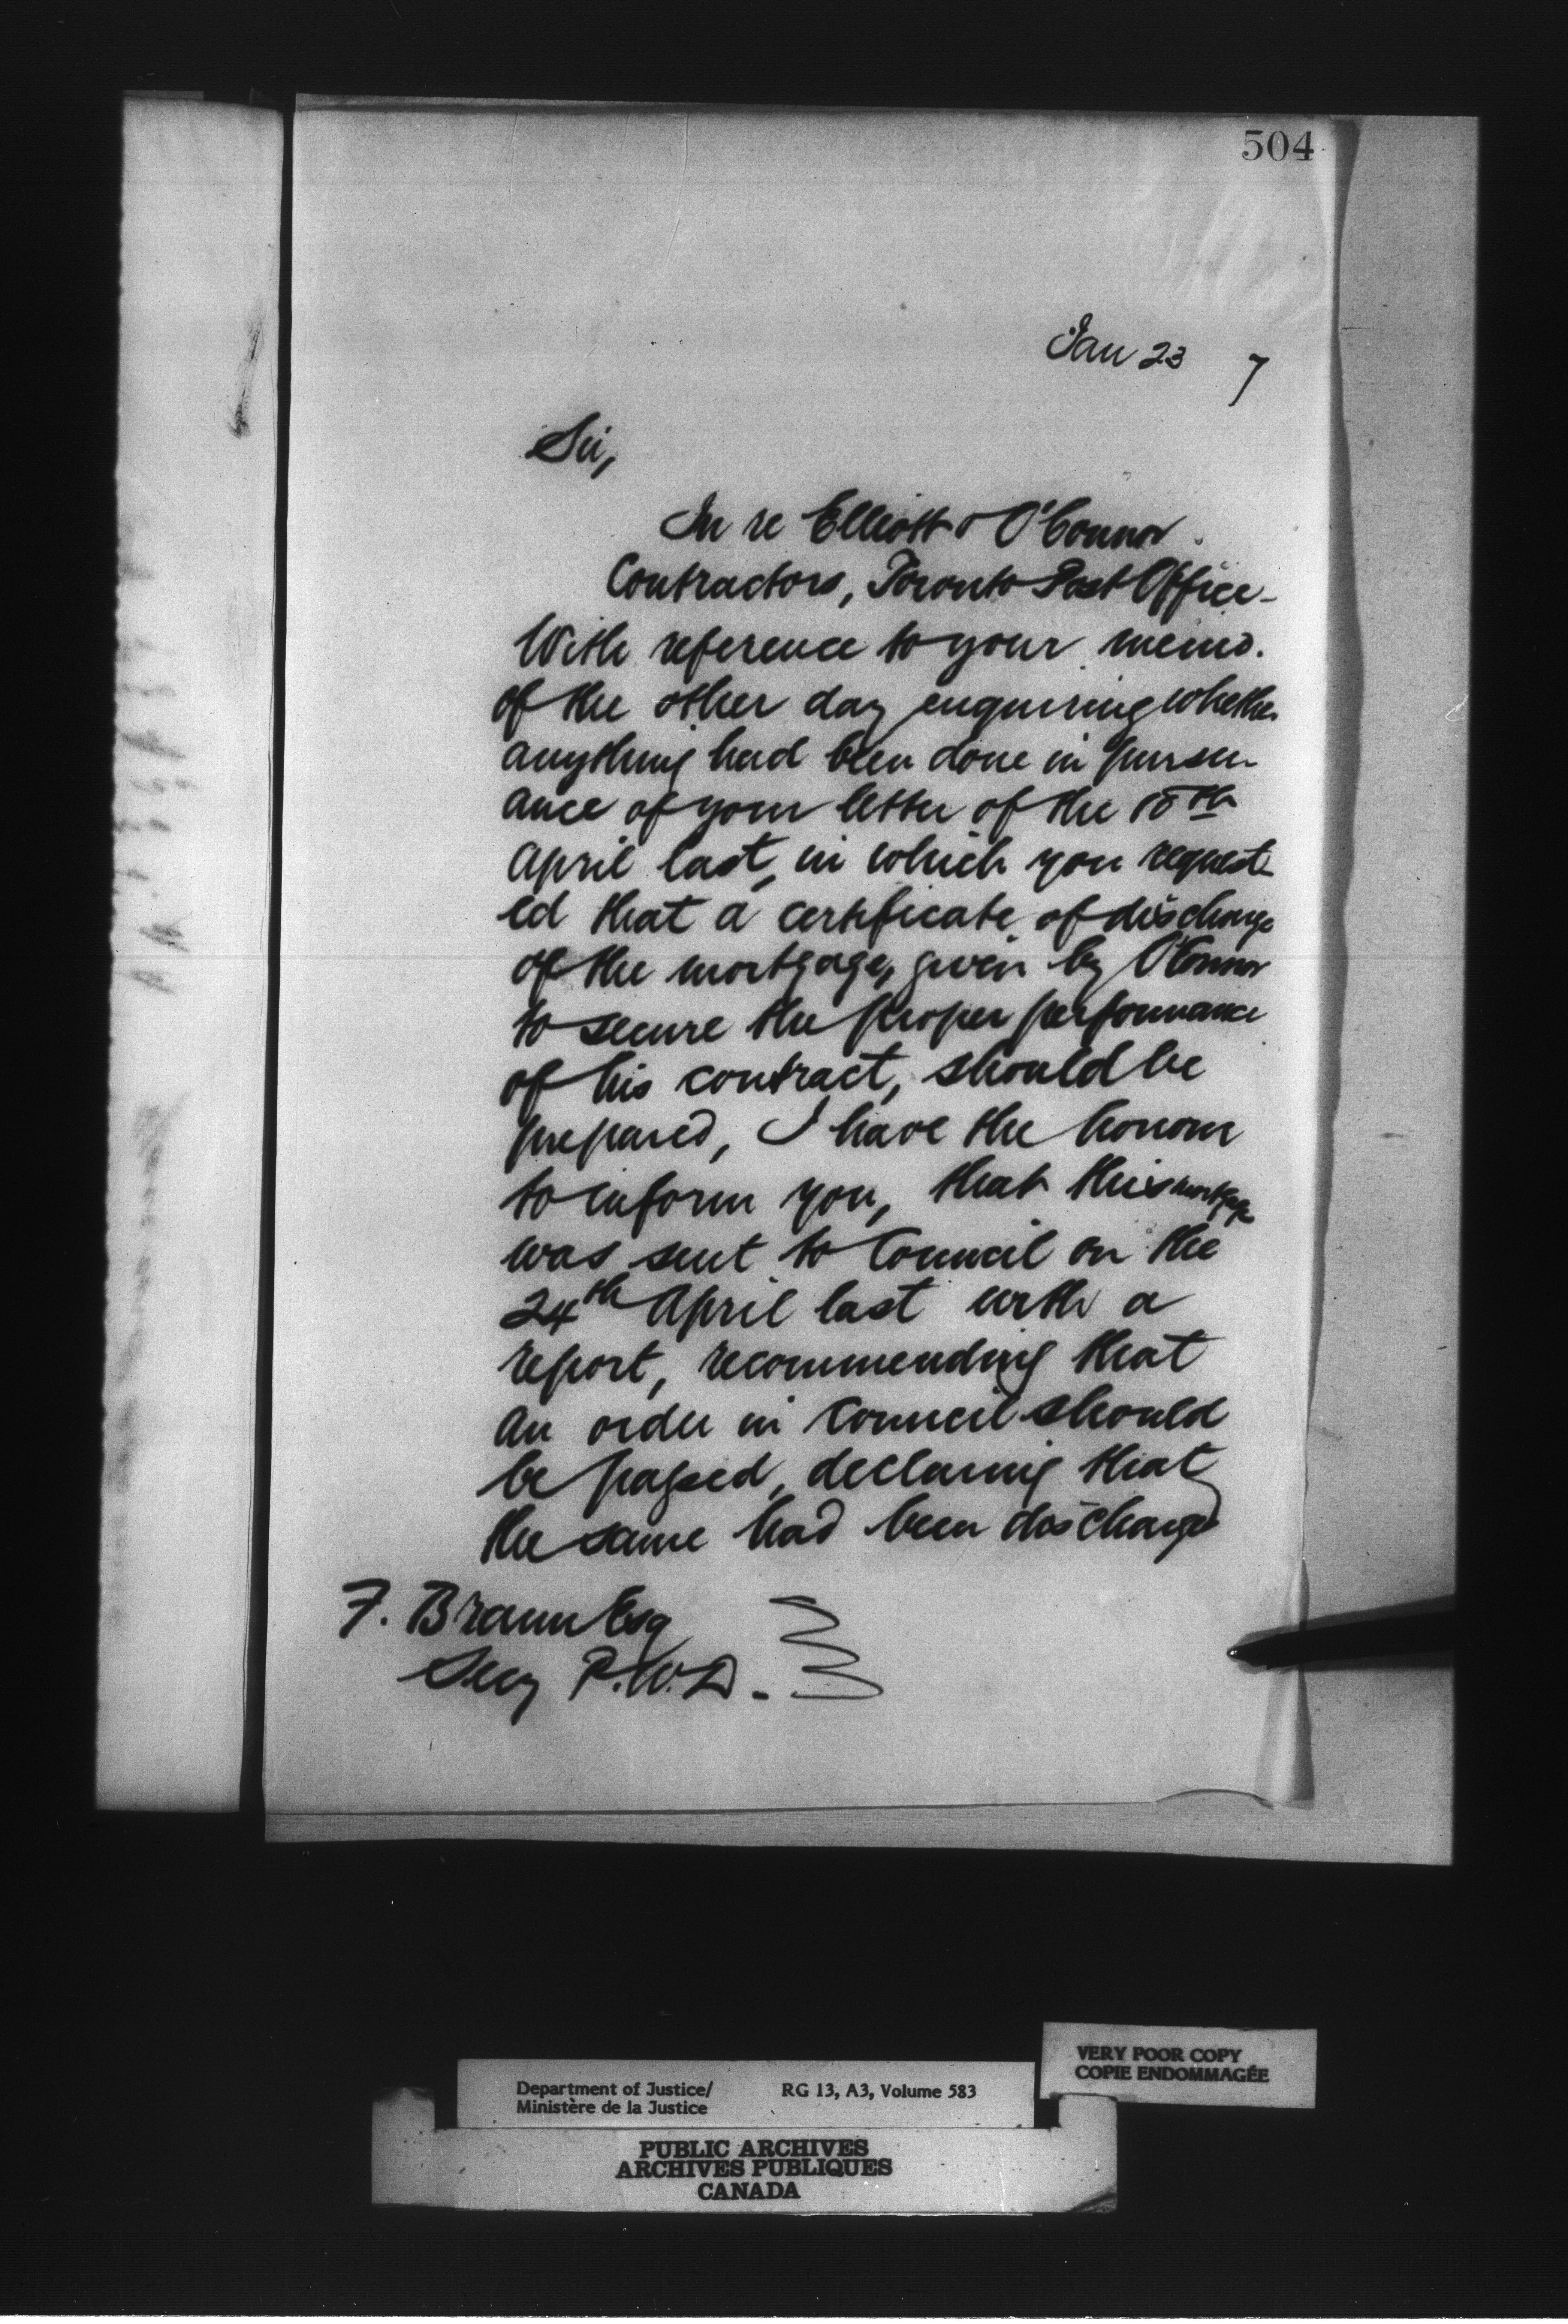 504
Jan 23 7
Sir,
In re Elliott & O'Connor.
Contractors, Toronto Post Office -
With reference to your memo.
of the other day enquiring whether
anything had been done in pursu-
ance of your letter of the 18th
April last, in which you request-
ed that a certificate of discharge
of the mortgage, given by O'Connor
to secure the proper performance
of his contract, should be
prepared, I have the honour
to inform you, that this mortgage
was sent to Council on the
24th April last with a
report, recommending that
an order in Council should
be passed, declaring that
the same had been discharged
F. Braun Esq
Secy P.W.D.
Department of Justice/
Ministère de la Justice
RG 13, A3, Volume 583
VERY POOR COPY
COPIE ENDOMMAGÉE
PUBLIC ARCHIVES
ARCHIVES PUBLIQUES
CANADA